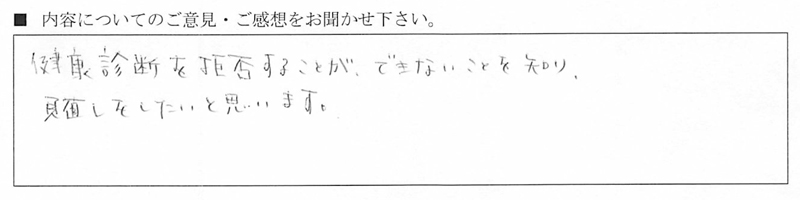 ■ 内容についてのご意見・ご感想をお聞かせ下さい。
健康診断を拒否することが、できないことを知り、
見直しをしたいと思います。